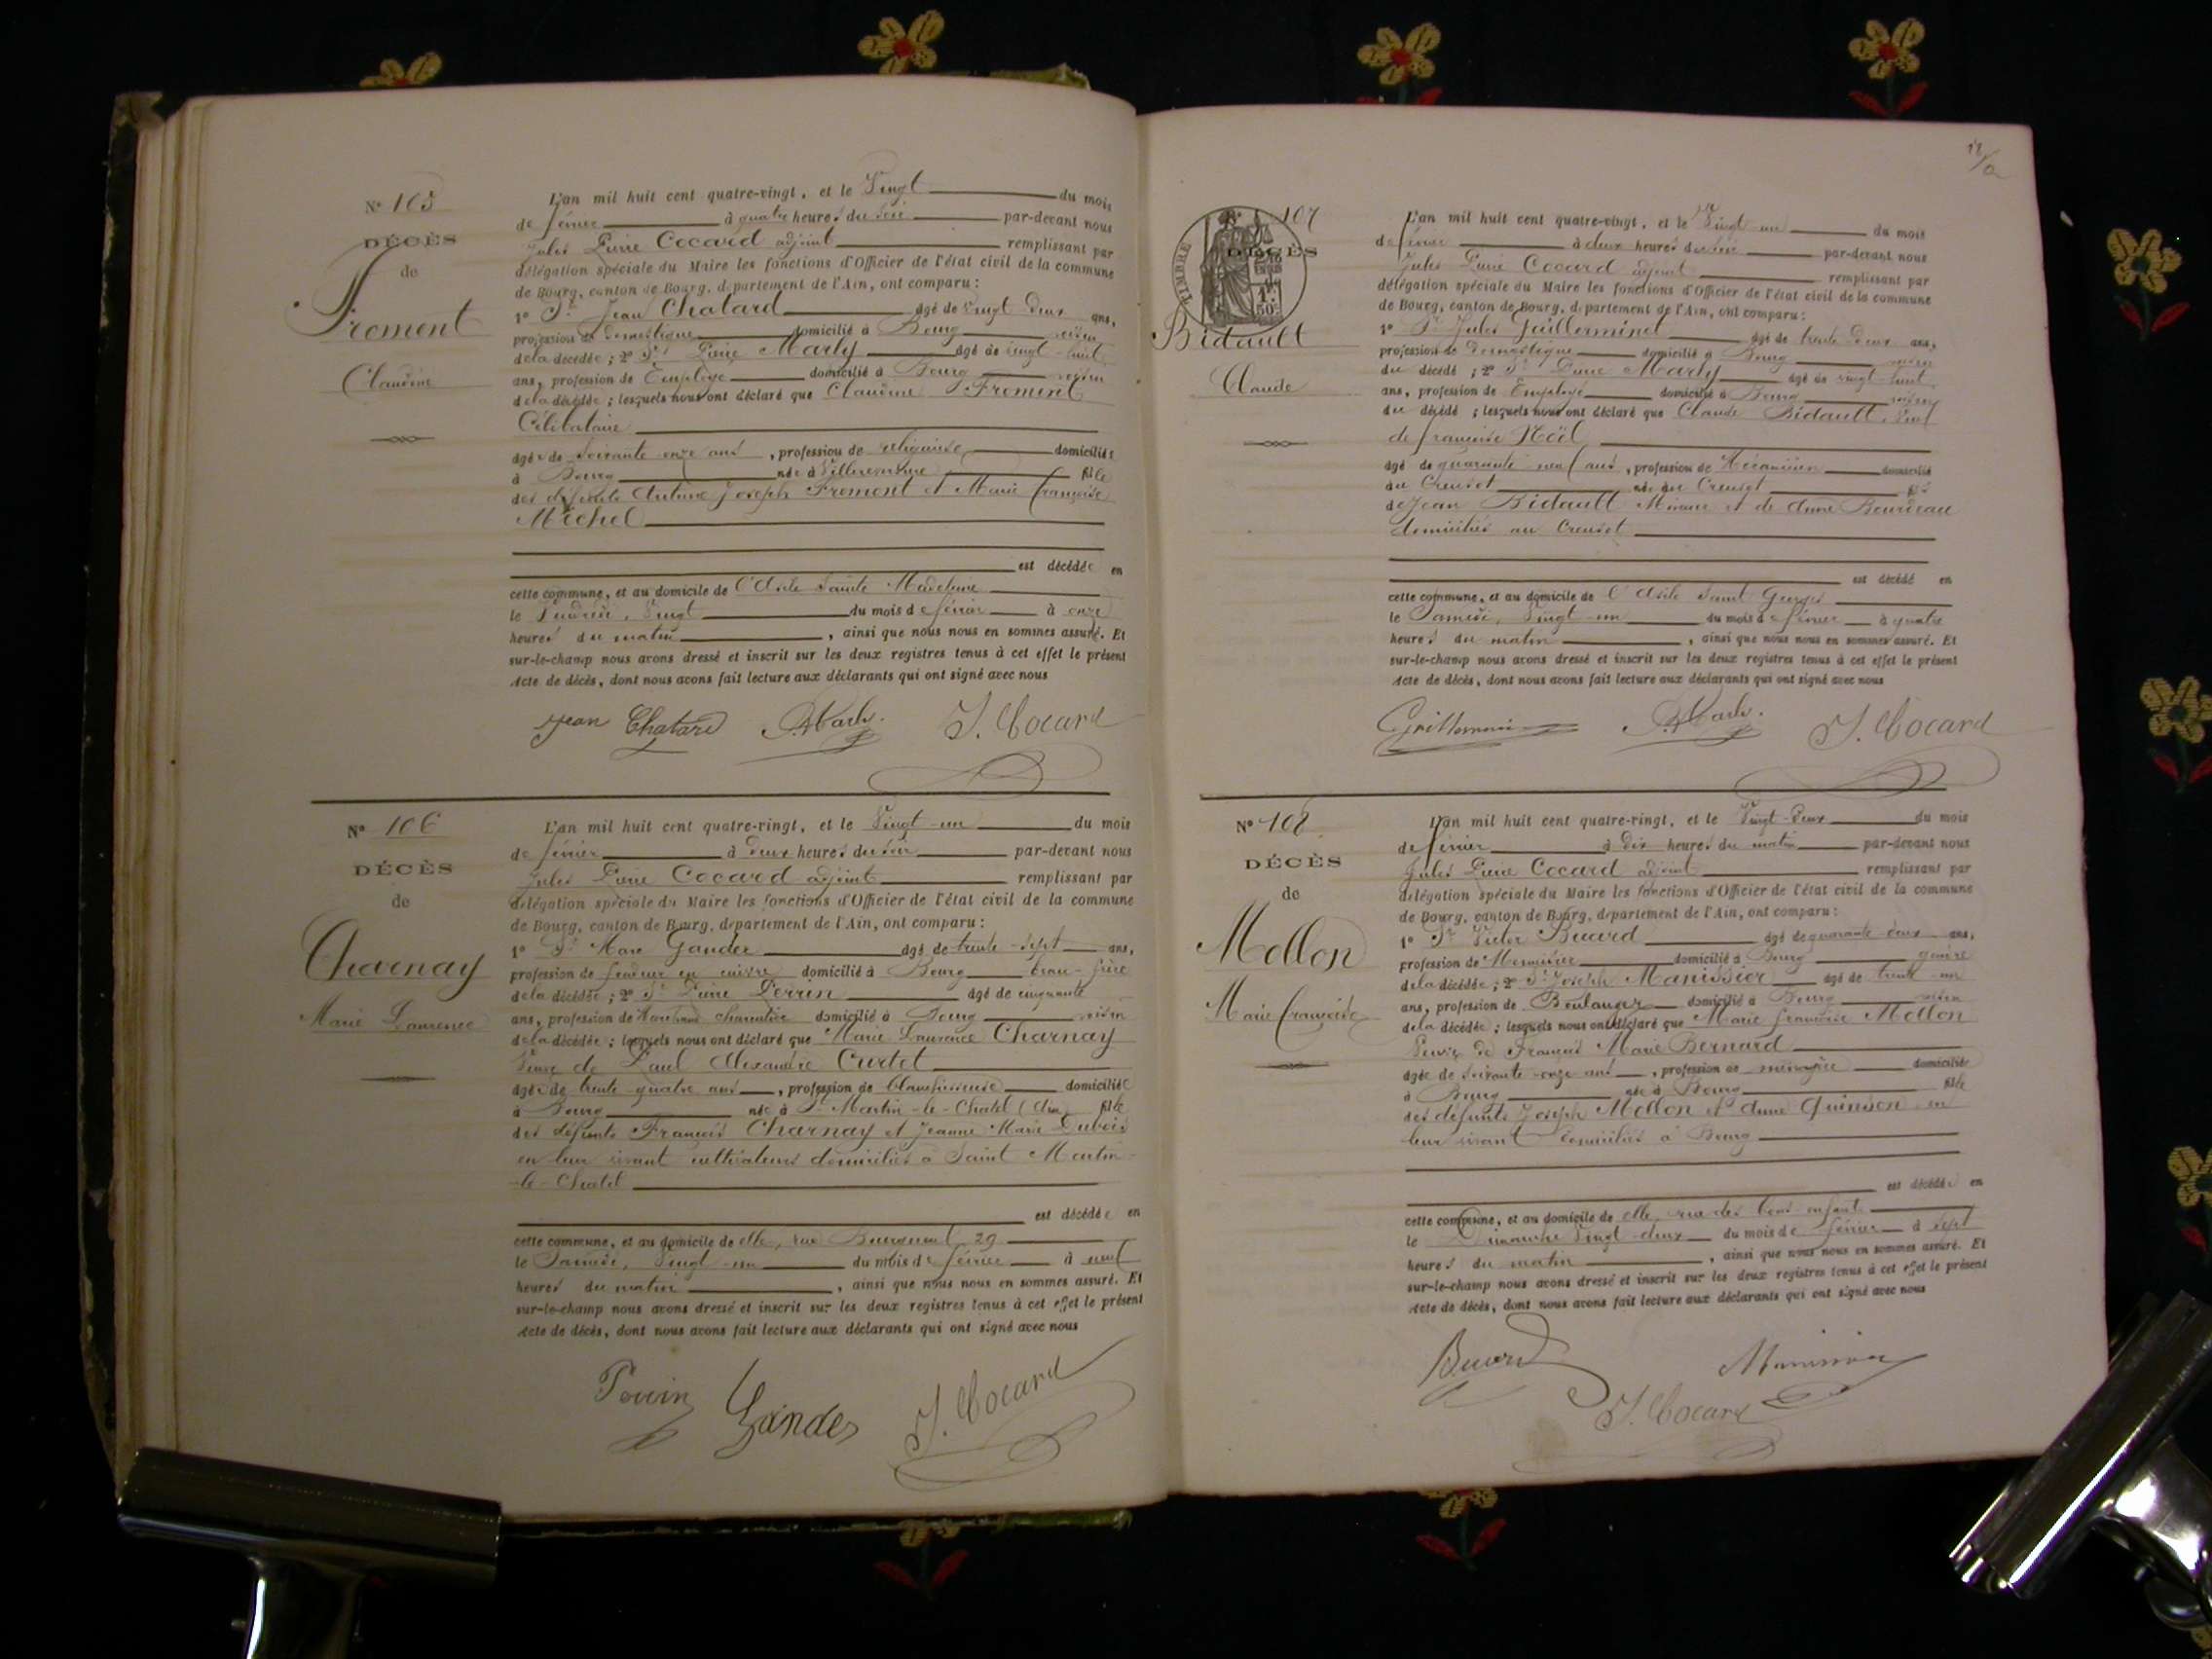 N° 105
DÉCÈS
de
Froment
Claudine
L'an mil huit cent quatre-vingt, et le Vingt du mois
de février à quatre heures du soir par-devant nous
Jules Pierre Cocard adjoint remplissant par
délégation spéciale du Maire les fonctions d'Officier de l'état civil de la commune
de Bourg, canton de Bourg, département de l'Ain, ont comparu :
1° Sr Jean Chatard âgé de vingt deux ans,
profession de domestique domicilié à Bourg voisin
de la décédée ; 2° Sr Pierre Marly âgé de vingt-huit
ans, profession de Employé domicilié à Bourg voisin
de la décédée ; lesquels nous ont déclaré que Claudine Froment
Célibataire
âgée de soixante onze ans, profession de religieuse domiciliée
à Bourg née à Villereversure fille
des défunts Antoine Joseph Froment et Marie françoise
Michel
est décédée en
cette commune, et au domicile de l'Asile Sainte Madeleine
le Vendredi, Vingt du mois de février à onze
heures du matin, ainsi que nous nous en sommes assuré. Et
sur-le-champ nous avons dressé et inscrit sur les deux registres tenus à cet effet le présent
Acte de décès, dont nous avons fait lecture aux déclarants qui ont signé avec nous
Jean Chatard P. Marly. J. Cocard
N° 106
DÉCÈS
de
Charnay
Marie Laurence
L'an mil huit cent quatre-vingt, et le Vingt-un du mois
de février à deux heures du soir par-devant nous
Jules Pierre Cocard adjoint remplissant par
délégation spéciale du Maire les fonctions d'Officier de l'état civil de la commune
de Bourg, canton de Bourg, département de l'Ain, ont comparu :
1° Sr Marc Gander âgé de trente-sept ans,
profession de fondeur en cuivre domicilié à Bourg beau-frère
de la décédée ; 2° Sr Pierre Perrin âgé de cinquante
ans, profession de domicilié à Bourg voisin
de la décédée ; lesquels nous ont déclaré que Marie Laurence Charnay
Veuve de Paul Alexandre Curtet
âgée de trente-quatre ans, profession de blanchisseuse domiciliée
à Bourg née à St Martin-le-Chatel (Ain) fille
des défunts François Charnay et Jeanne Marie Dubois
en leur vivant cultivateurs domiciliés à Saint Martin-
-le-Chatel
est décédée en
cette commune, et au domicile de elle, rue Bourgmayer, 29
le Samedi, Vingt-un du mois de février à neuf
heures du matin, ainsi que nous nous en sommes assuré. Et
sur-le-champ nous avons dressé et inscrit sur les deux registres tenus à cet effet le présent
Acte de décès, dont nous avons fait lecture aux déclarants qui ont signé avec nous
Perrin Gander J. Cocard
107
DÉCÈS
TIMBRE
50c
Bidault
Claude
L'an mil huit cent quatre-vingt, et le Vingt-un du mois
de février à deux heures du soir par-devant nous
Jules Pierre Cocard adjoint remplissant par
délégation spéciale du Maire les fonctions d'Officier de l'état civil de la commune
de Bourg, canton de Bourg, département de l'Ain, ont comparu :
1° Sr Jules Guillerminet âgé de trente deux ans,
profession de Domestique domicilié à Bourg voisin
du décédé ; 2° Sr Pierre Marly âgé de vingt-huit
ans, profession de Employé domicilié à Bourg voisin
du décédé ; lesquels nous ont déclaré que Claude Bidault, Veuf
de françoise Noël
âgé de quarante-neuf ans, profession de Mécanicien domicilié
au Creusot né au Creusot fils
de Jean Bidault Mineur et de Anne Bourdeau
domiciliés au Creusot
est décédé en
cette commune, et au domicile de l'Asile Saint Georges
le Samedi, Vingt-un du mois de février à quatre
heures du matin, ainsi que nous nous en sommes assuré. Et
sur-le-champ nous avons dressé et inscrit sur les deux registres tenus à cet effet le présent
Acte de décès, dont nous avons fait lecture aux déclarants qui ont signé avec nous
P. Marly. J. Cocard
N° 108
DÉCÈS
de
Mollon
Marie françoise
L'an mil huit cent quatre-vingt, et le Vingt-deux du mois
de février à dix heures du matin par-devant nous
Jules Pierre Cocard adjoint remplissant par
délégation spéciale du Maire les fonctions d'Officier de l'état civil de la commune
de Bourg, canton de Bourg, département de l'Ain, ont comparu :
1° Sr Victor Buard âgé de quarante-deux ans,
profession de Menuisier domicilié à Bourg gendre
de la décédée ; 2° Sr Joseph Manissier âgé de trente-un
ans, profession de Boulanger domicilié à Bourg voisin
de la décédée ; lesquels nous ont déclaré que Marie françoise Mollon
Veuve de François Marie Bernard
âgée de soixante-onze ans, profession de ménagère domiciliée
à Bourg née à Bourg fille
des défunts Joseph Mollon et Anne Quinson en
leur vivant domiciliés à Bourg
est décédée en
cette commune, et au domicile de elle, rue des bons enfants
le Dimanche Vingt-deux du mois de février à sept
heures du matin, ainsi que nous nous en sommes assuré. Et
sur-le-champ nous avons dressé et inscrit sur les deux registres tenus à cet effet le présent
Acte de décès, dont nous avons fait lecture aux déclarants qui ont signé avec nous
Buard Manissier
J. Cocard